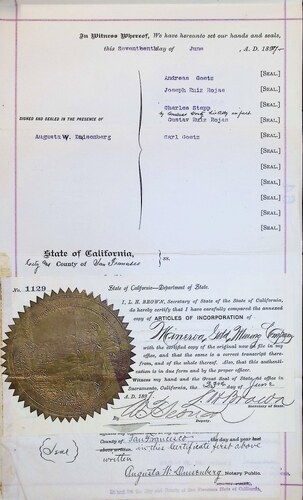 In Witness Whereof, We have hereunto set our hands and seals,
this Seventeenth day of June , A. D. 1897.
Andreas Goetz [SEAL.]
Joseph Ruiz Rojas [SEAL.]
Charles Stepp [SEAL.]
by Andreas Goetz his atty in fact
Gustav Ruiz Rojas [SEAL.]
SIGNED AND SEALED IN THE PRESENCE OF
Augusta W. Duisenberg Carl Goetz [SEAL.]
[SEAL.]
[SEAL.]
[SEAL.]
[SEAL.]
State of California,
City and County of San Francisco } ss.
No. 1129
State of California—Department of State.
I, L. H. BROWN, Secretary of State of the State of California,
do hereby certify that I have carefully compared the annexed
copy of ARTICLES OF INCORPORATION of
Gold Mining Company
with the certified copy of the original now on file in my
office, and that the same is a correct transcript therefrom,
and of the whole thereof. Also, that this authenti-
cation is in due form and by the proper officer.
Witness my hand and the Great Seal of State, at office in
Sacramento, California, the 23rd day of June
A. D. 1897
L. H. Brown
Secretary of State.
By
Deputy
County of San Francisco the day and year last
in this Certificate first above
written
(Seal)
Augusta W. Duisenberg Notary Public
State of California.